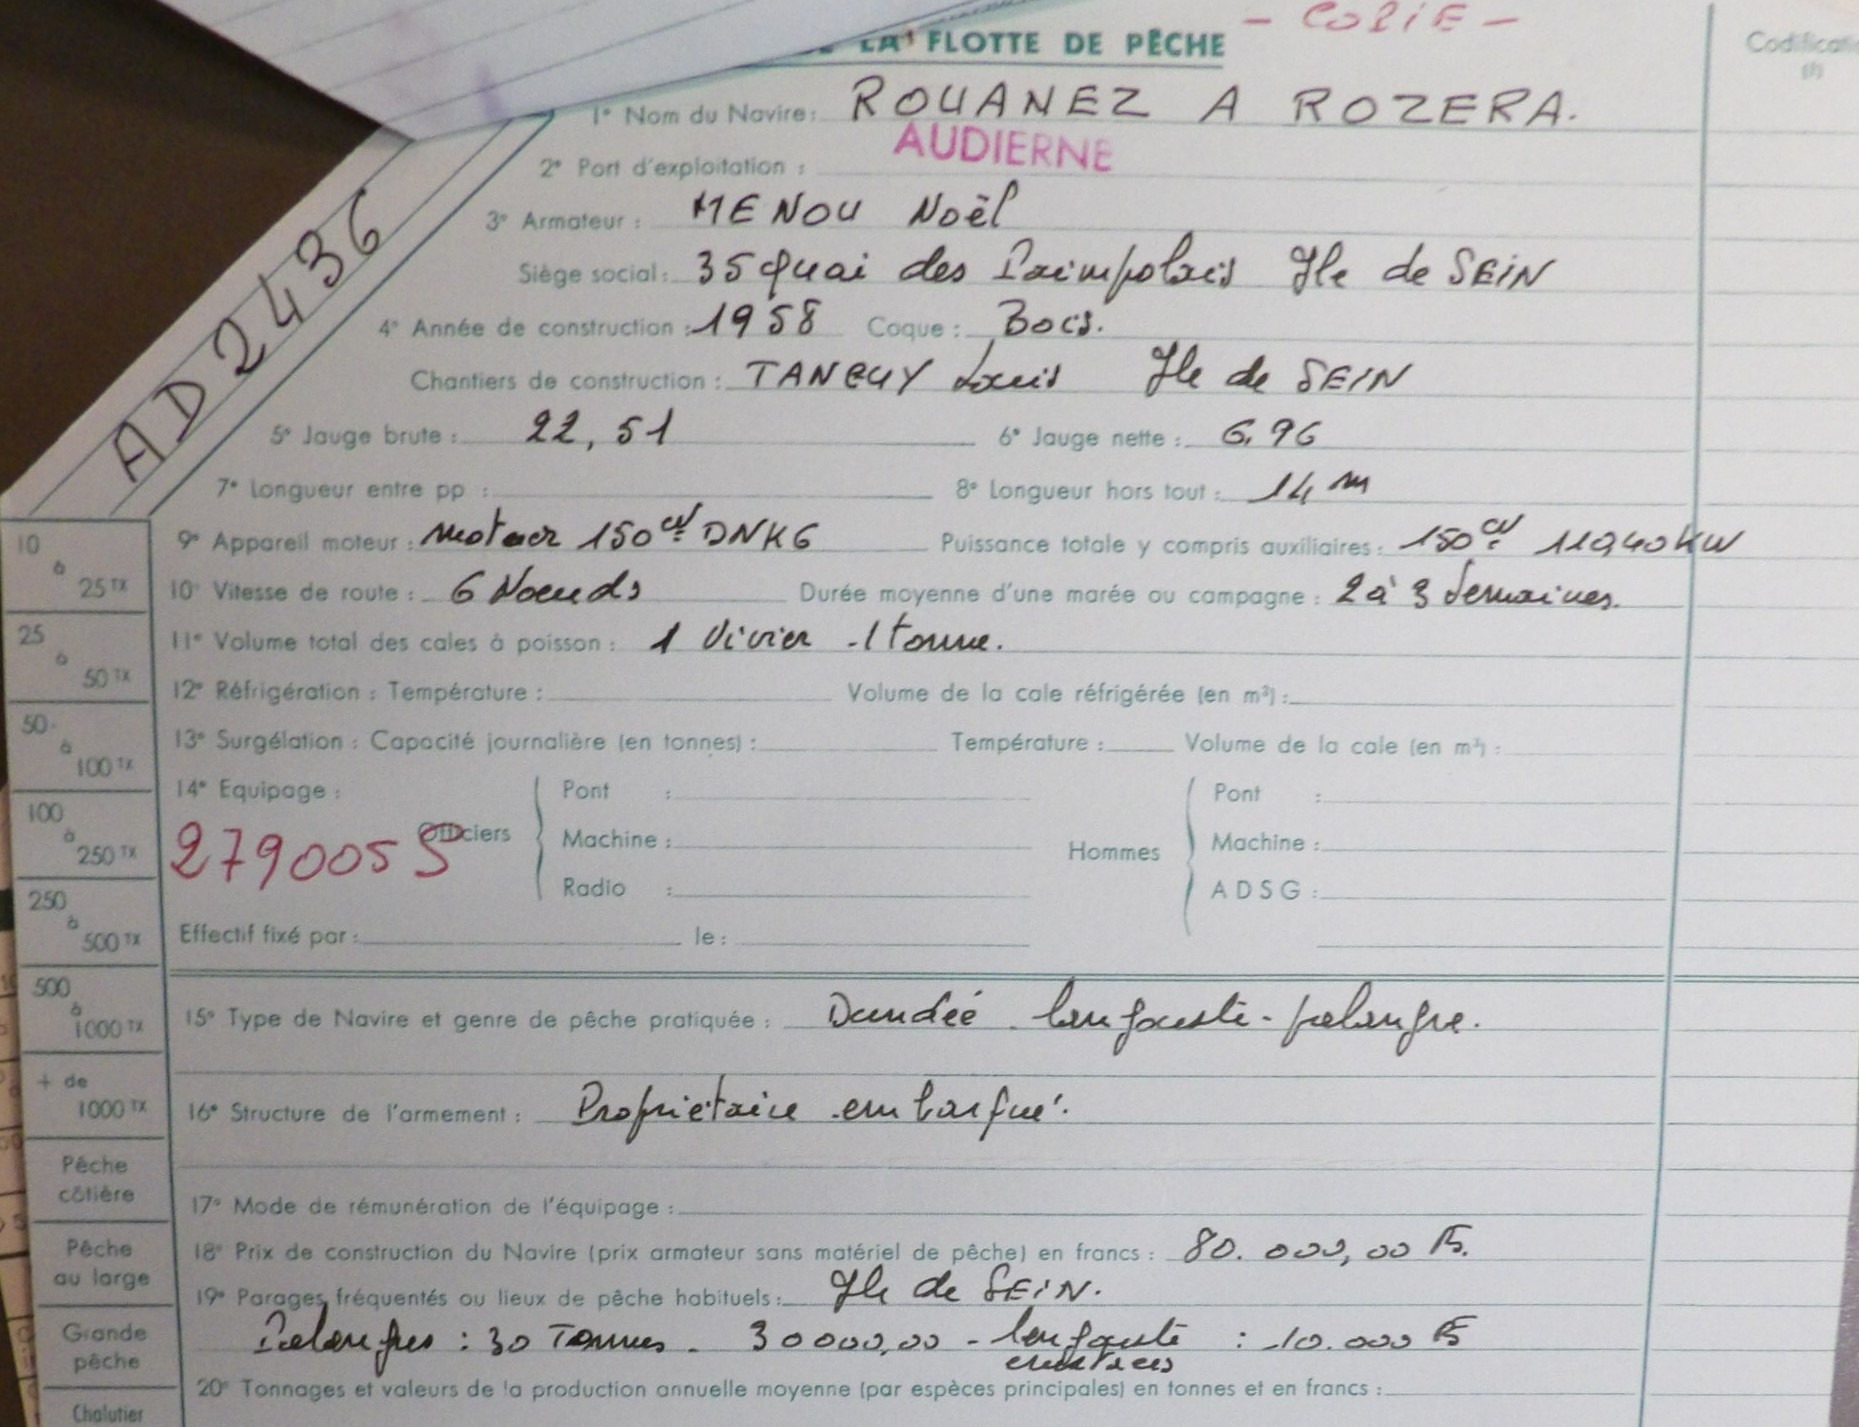 - COPIE -
LA FLOTTE DE PÊCHE
Codificati
(1)
1° Nom du Navire : ROUANEZ A ROZERA.
2° Port d'exploitation : AUDIERNE
3° Armateur : MENOU Noël
Siège social : 35 quai des Paimpolais Ile de SEIN
4° Année de construction : 1958 Coque : Bois.
Chantiers de construction : TANGUY Louis Ile de SEIN
AD 2436
5° Jauge brute : 22,51 6° Jauge nette : 6,96
7° Longueur entre pp : 8° Longueur hors tout : 14 m
9° Appareil moteur : moteur 150 cv DNK6 Puissance totale y compris auxiliaires : 150 cv 110,40 KW
10° Vitesse de route : 6 Noeuds Durée moyenne d'une marée ou campagne : 2 à 3 Semaines.
11° Volume total des cales à poisson : 1 Vivier - 1 tonne.
12° Réfrigération : Température : Volume de la cale réfrigérée (en m³) :
13° Surgélation : Capacité journalière (en tonnes) : Température : Volume de la cale (en m³) :
14° Equipage :
Officiers
Pont :
Machine :
Radio :
Hommes
Pont :
Machine :
A D S G :
279005 S
Effectif fixé par : le :
15° Type de Navire et genre de pêche pratiquée : Dundée - langouste - palangre.
16° Structure de l'armement : Propriétaire embarqué.
17° Mode de rémunération de l'équipage :
18° Prix de construction du Navire (prix armateur sans matériel de pêche) en francs : 80.000,00 F.
19° Parages fréquentés ou lieux de pêche habituels : Ile de SEIN.
Palangres : 30 Tonnes - 30000,00 - langouste : - 10.000 F
crustacés
20° Tonnages et valeurs de la production annuelle moyenne (par espèces principales) en tonnes et en francs :
10
à
25 TX
25
à
50 TX
50
à
100 TX
100
à
250 TX
250
à
500 TX
500
à
1000 TX
+ de
1000 TX
Pêche
côtière
Pêche
au large
Grande
pêche
Chalutier